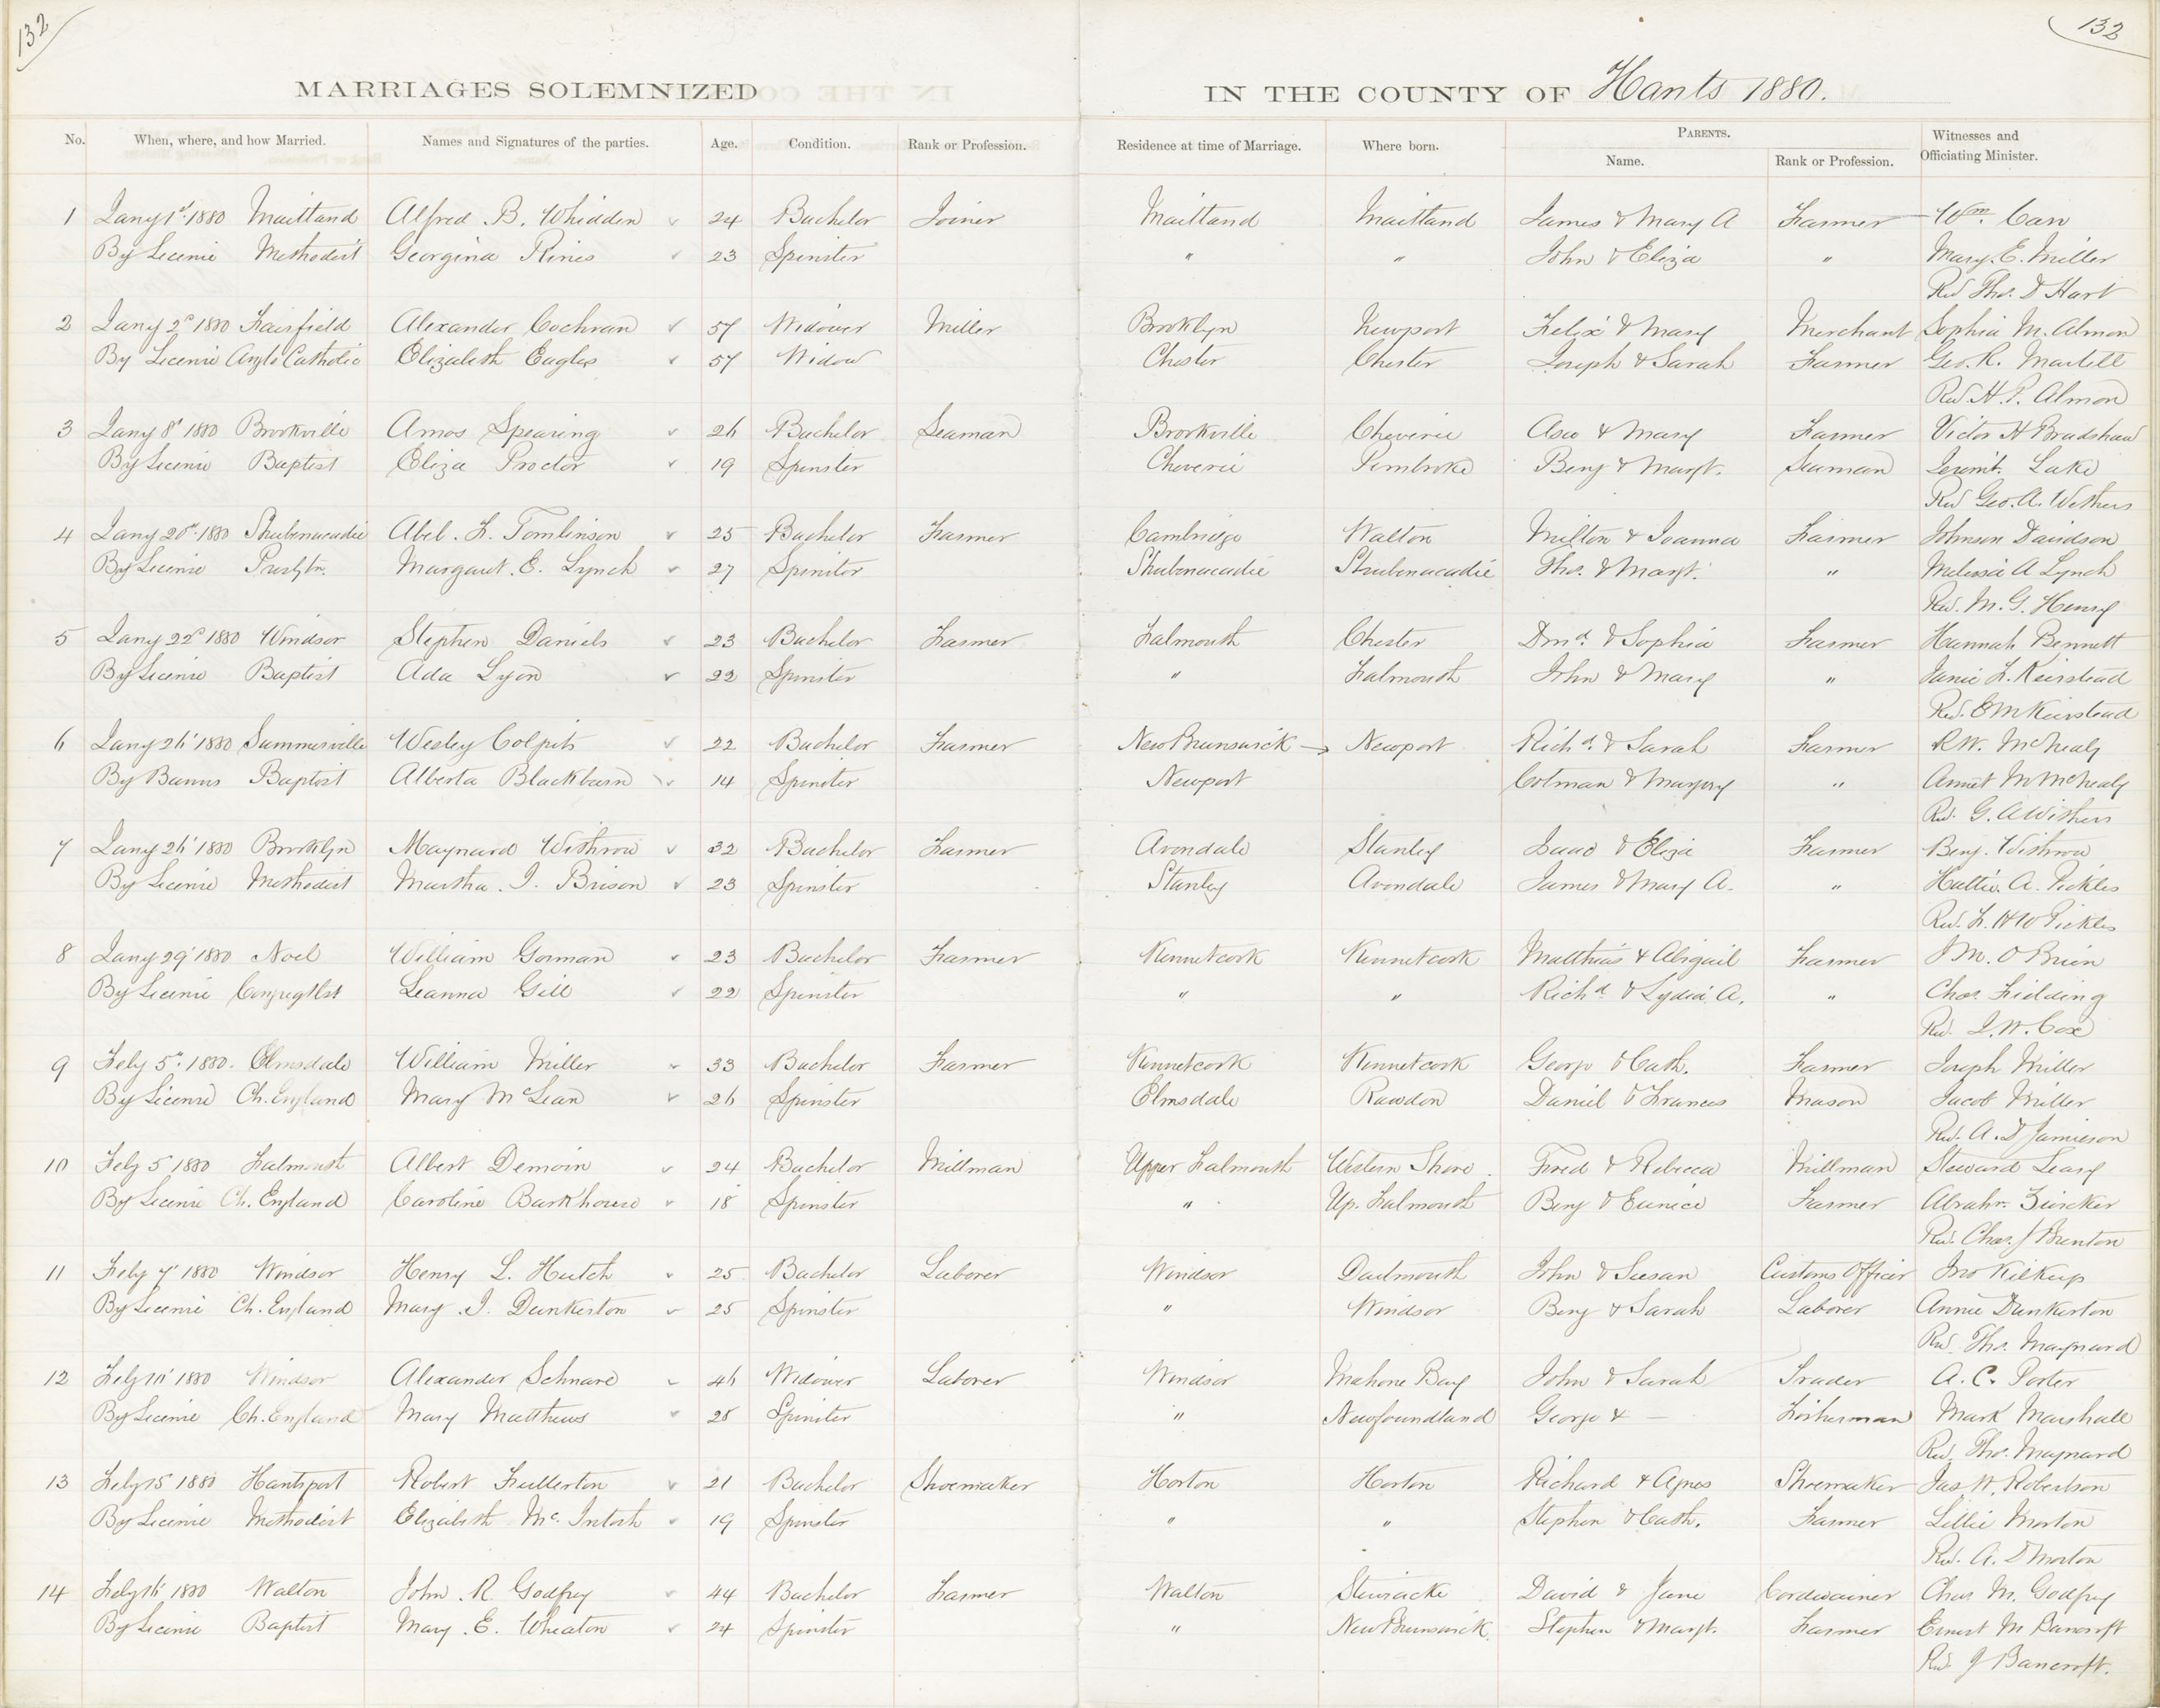 132
132
MARRIAGES SOLEMNIZED IN THE COUNTY OF Hants 1880.
No. When, where, and how Married. Names and Signatures of the parties. Age. Condition. Rank or Profession. Residence at time of Marriage. Where born. PARENTS. Name. Rank or Profession. Witnesses and Officiating Minister.
1 Jany 1st 1880 Maitland Alfred B. Whidden 24 Bachelor Joiner Maitland Maitland James & Mary A Farmer Wm. Carr
By Licence Methodist Georgina Rines 23 Spinster " " John & Eliza " Mary E. Miller
Rev Thos. D Hart
2 Jany 2d 1880 Fairfield Alexander Cochran 57 Widower Miller Brooklyn Newport Felix & Mary Merchant Sophia M. Almon
By Licence Anglo Catholic Elizabeth Eagles 57 Widow Chester Chester Joseph & Sarah Farmer Geo. R. Martell
Rev. H. P. Almon
3 Jany 8th 1880 Brookville Amos Spearing 26 Bachelor Seaman Brookville Cheverie Asa & Mary Farmer Victor H Bradshaw
By Licence Baptist Eliza Proctor 19 Spinster Cheverie Pembroke Benj & Margt. Seaman Lake
Rev Geo. A. Withers
4 Jany 20th 1880 Shubenacadie Abel. F. Tomlinson 25 Bachelor Farmer Cambridge Walton Milton & Joanna Farmer Johnson Davidson
By Licence Presbtn. Margaret E. Lynch 27 Spinster Shubenacadie Shubenacadie Thos. & Margt. " Melissa A Lynch
Rev. M. G. Henry
5 Jany 22d 1880 Windsor Stephen Daniels 23 Bachelor Farmer Falmouth Chester & Sophia Farmer Hannah Bennett
By Licence Baptist Ada Lyon 22 Spinster " Falmouth John & Mary " Janie F. Keirstead
Rev. E M Keirstead
6 Jany 26th 1880 Summerville Wesley Colpits 22 Bachelor Farmer New Brunswick → Newport Richd. & Sarah Farmer R W. McNealy
By Banns Baptist Alberta Blackburn 14 Spinster Newport Colman & Margery " M McNealy
Rev. G. A Withers
7 Jany 26th 1880 Brooklyn Maynard Withrow 32 Bachelor Farmer Avondale Stanley Isaac & Eliza Farmer Benj. Withrow
By Licence Methodist Martha. J. Brison 23 Spinster Stanley Avondale James & Mary A. " Hattie A. Pickles
Rev. F. H W Pickles
8 Jany 29th 1880 Noel William Gorman 23 Bachelor Farmer Kennetcook Kennetcook Matthias & Abigail Farmer J M. O Brien
By Licence Congregtlst Leanna Gill 22 Spinster " " Richd & Lydia A. " Chas. Fielding
Rev. J. W. Cox
9 Feby 5th 1880. Elmsdale William Miller 33 Bachelor Farmer Kennetcook Kennetcook George & Cath. Farmer Joseph Miller
By Licence Ch. England Mary McLean 26 Spinster Elmsdale Rawdon Daniel & Frances Mason Jacob Miller
Rev. A. D Jamieson
10 Feby 5 1880 Falmouth Albert Demoin 24 Bachelor Millman Upper Falmouth Western Shore Fred & Rebecca Millman Steward Leary
By Licence Ch. England Caroline Barkhouse 18 Spinster " Up. Falmouth Benj & Eunice Farmer Abrahm. Zwicker
Rev. Chas. J Brenton
11 Feby 7th 1880 Windsor Henry L. Hutch 25 Bachelor Laborer Windsor Dartmouth John & Susan Customs Officer Jno Kilkup
By Licence Ch. England Mary. J. Dunkerton 25 Spinster " Windsor Benj & Sarah Laborer Annie Dunkerton
Rev. Thos. Maynard
12 Feby 10th 1880 Windsor Alexander Schnare 46 Widower Laborer Windsor Mahone Bay John & Sarah Trader A. C. Porter
By Licence Ch. England Mary Matthews 25 Spinster " Newfoundland George & — Fisherman Mark Marshall
Rev. Thos. Maynard
13 Feby 15 1880 Hantsport Robert Fullerton 21 Bachelor Shoemaker Horton Horton Richard & Agnes Shoemaker Jas W. Robertson
By Licence Methodist Elizabeth McIntosh 19 Spinster " " Stephen & Cath. Farmer Lillie Morton
Rev. A. D Morton
14 Feby 16th 1880 Walton John. R. Godfrey 44 Bachelor Farmer Walton Stewiacke David & Jane Cordwainer Chas M. Godfrey
By Licence Baptist Mary. E. Wheaton 24 Spinster " New Brunswick. Stephen & Margt. Farmer Ernest M Bancroft
Rev J Bancroft.